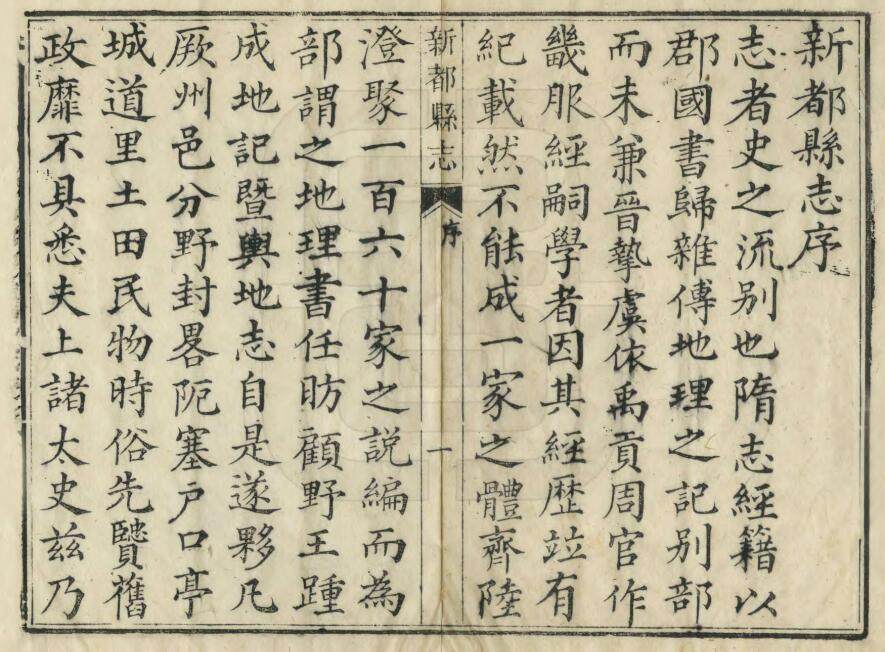 新都縣志序
志者史之流别也隋志經籍以
郡國書歸雜傳地理之記别部
而未兼晉摯虞依禹貢周官作
畿服經嗣學者因其經歴竝有
紀載然不能成一家之體齊陸
新都縣志
序
一
澄聚一百六十家之説編而為
部謂之地理書任昉顧野王踵
成地記曁輿地志自是遂夥凡
厥州邑分野封畧阨塞戸口亭
城道里土田民物時俗先賢舊
政靡不具悉夫上諸太史兹乃